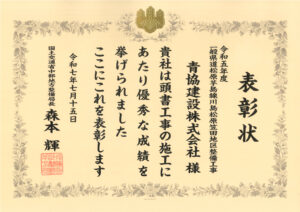 表彰状
令和五年度
一般県道松原芋島線川島松原笠田地区整備工事
青協建設株式会社 様
貴社は頭書工事の施工に
あたり優秀な成績を
挙げられました
ここにこれを表彰します
令和七年七月十五日
国土交通省中部地方整備局長
森本 輝